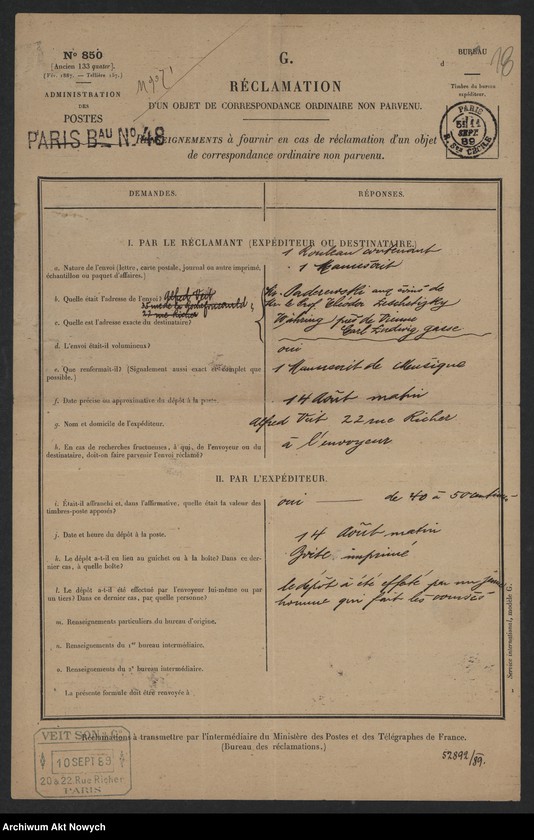 Nº 850
[Ancien 133 quater].
[Fév. 1887. — Tellière 157.]
ADMINISTRATION
DES
POSTES
PARIS BAU Nº 48
G.
RÉCLAMATION
D'UN OBJET DE CORRESPONDANCE ORDINAIRE NON PARVENU.
RENSEIGNEMENTS à fournir en cas de réclamation d'un objet
de correspondance ordinaire non parvenu.
BUREAU
d
18
Timbre du bureau
expéditeur.
PARIS
11
SEPT
89
R. Ste CÉCILE
DEMANDES.
RÉPONSES.
I. PAR LE RÉCLAMANT (EXPÉDITEUR OU DESTINATAIRE.)
a. Nature de l'envoi (lettre, carte postale, journal ou autre imprimé,
échantillon ou paquet d'affaires.)
1 Rouleau contenant
1 Manuscrit
b. Quelle était l'adresse de l'envoi?
Alfred Veit
22 rue Richer
c. Quelle est l'adresse exacte du destinataire?
Mr. Paderewski aux soins de
Mr. le Prof. Théodor Leschetizky
Währing près de Vienne
Carl Ludwig gasse
d. L'envoi était-il volumineux?
oui
e. Que renfermait-il? (Signalement aussi exact et complet que
possible.)
1 Manuscrit de Musique
f. Date précise ou approximative du dépôt à la poste.
14 Août matin
g. Nom et domicile de l'expéditeur.
Alfred Veit 22 rue Richer
h. En cas de recherches fructueuses, à qui, de l'envoyeur ou du
destinataire, doit-on faire parvenir l'envoi réclamé?
à l'envoyeur
II. PAR L'EXPÉDITEUR.
i. Était-il affranchi et, dans l'affirmative, quelle était la valeur des
timbres-poste apposés?
oui — de 40 à 50 centimes
j. Date et heure du dépôt à la poste.
14 Août matin
k. Le dépôt a-t-il eu lieu au guichet ou à la boîte? Dans ce der-
nier cas, à quelle boîte?
boîte imprimé
l. Le dépôt a-t-il été effectué par l'envoyeur lui-même ou par
un tiers? Dans ce dernier cas, par quelle personne?
le dépôt à été effété par un jeune
homme qui fait les courses
m. Renseignements particuliers du bureau d'origine.
n. Renseignements du 1er bureau intermédiaire.
o. Renseignements du 2e bureau intermédiaire.
La présente formule doit être renvoyée à
Service international, modèle G.
Réclamations à transmettre par l'intermédiaire du Ministère des Postes et des Télégraphes de France.
(Bureau des réclamations.)
52892/89.
VEIT SON & Co
10 SEPT 89
20 & 22 Rue Richer
PARIS
Archiwum Akt Nowych